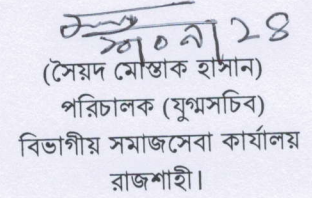 (সৈয়দ মোস্তাক হাসান)
পরিচালক (যুগ্মসচিব)
বিভাগীয় সমাজসেবা কার্যালয়
রাজশাহী।